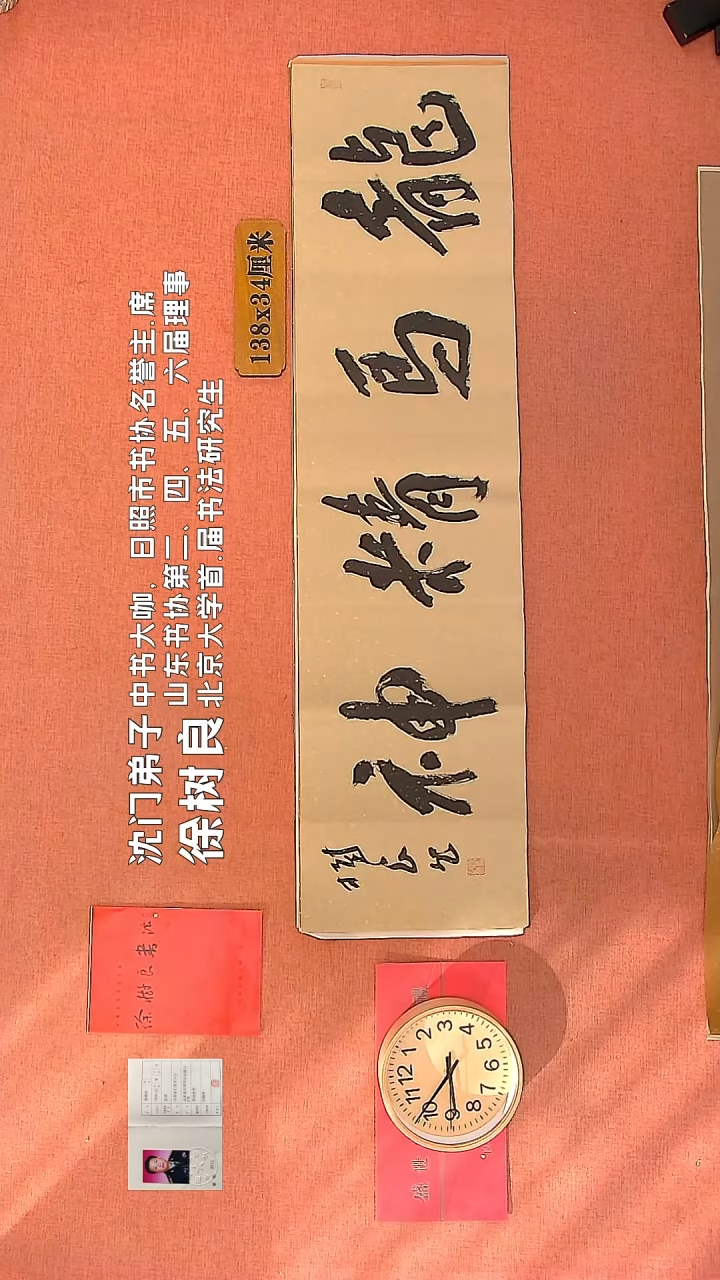 沈门弟子 中书大咖，日照市书协名誉主.席
山东书协第三、四、五、六届理事
徐树良 北京大学首.届书法研究生
138x34厘米
龍馬精神
樹良书
徐树良书法。
12
1
2
3
4
5
6
7
8
9
10
11